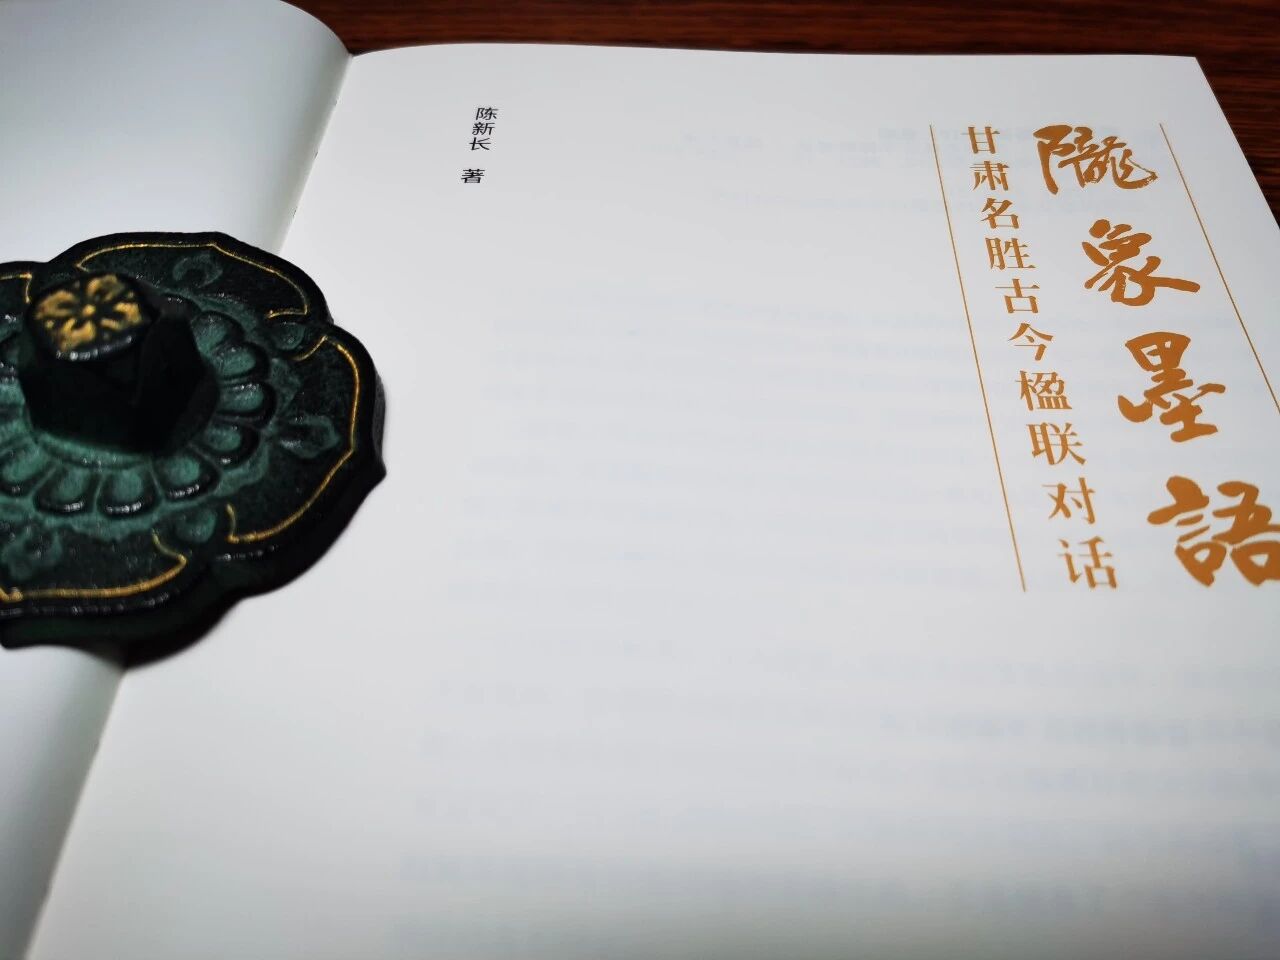 隴象墨語
甘肃名胜古今楹联对话
陈新长 著